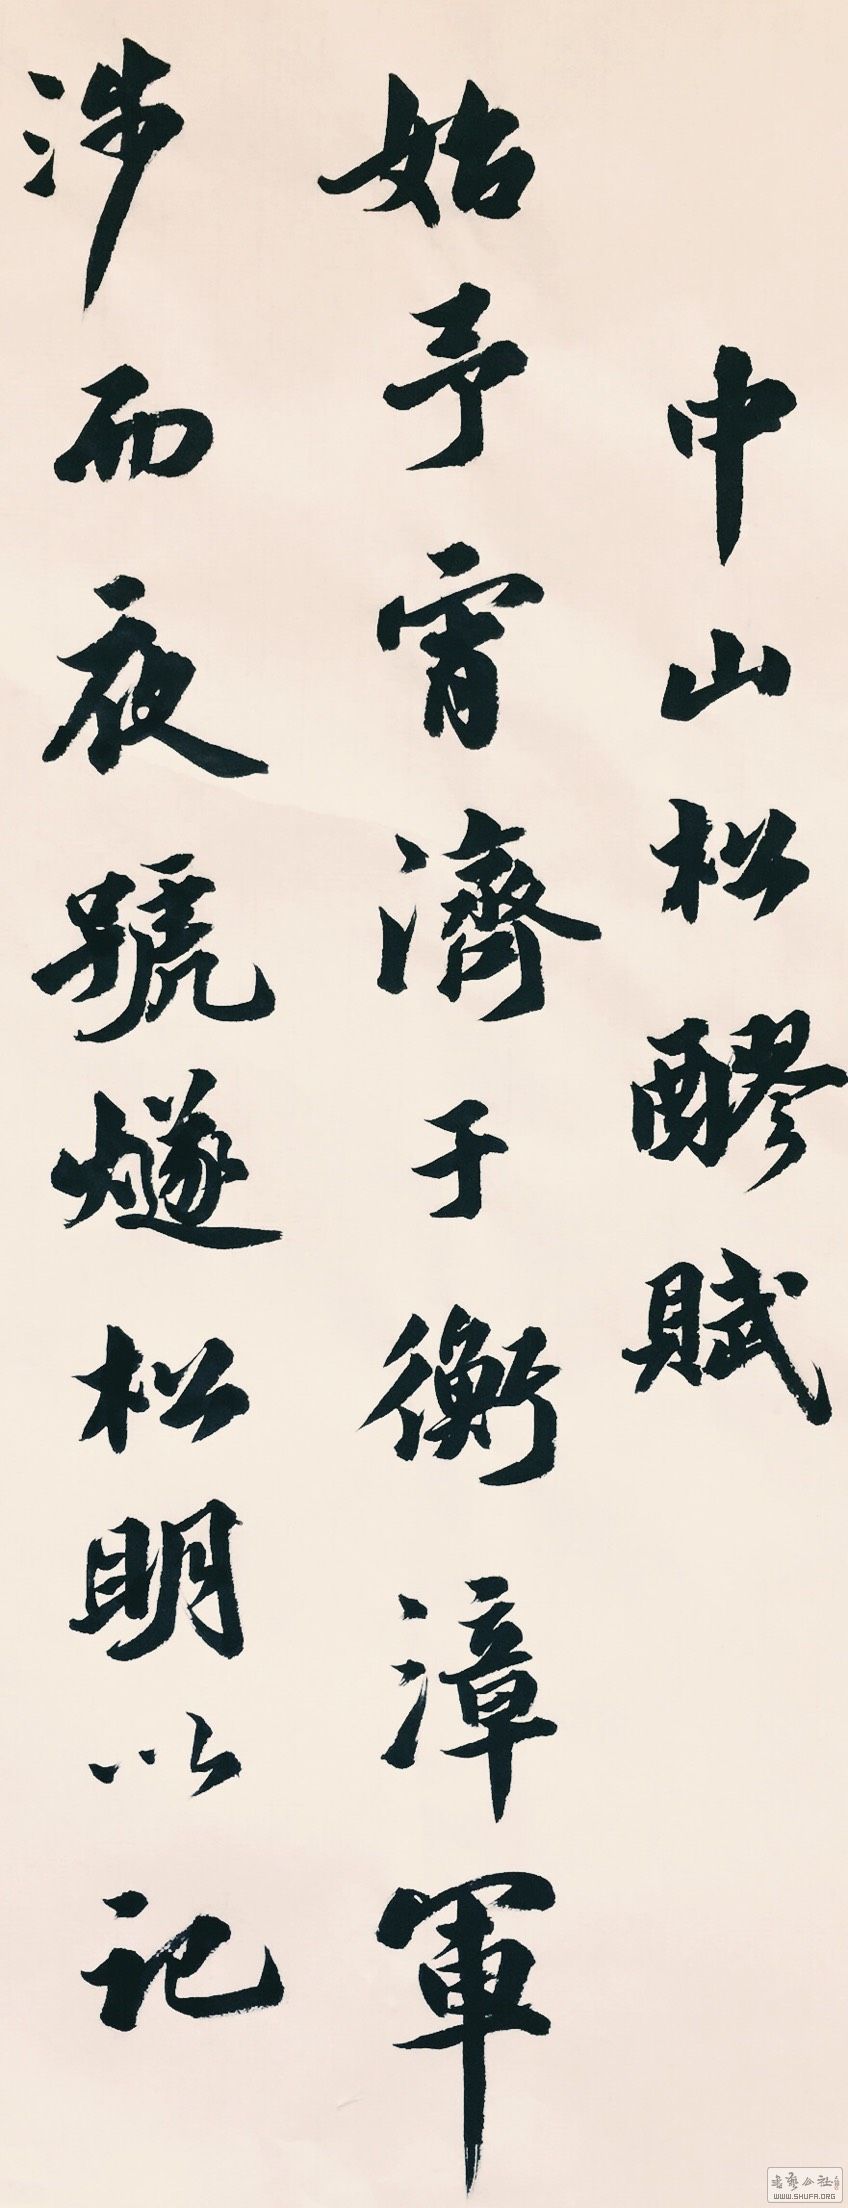 中山松醪賦
始予宵濟于衡漳軍
涉而夜號燧松明以記
WWW.SHUFA.ORG